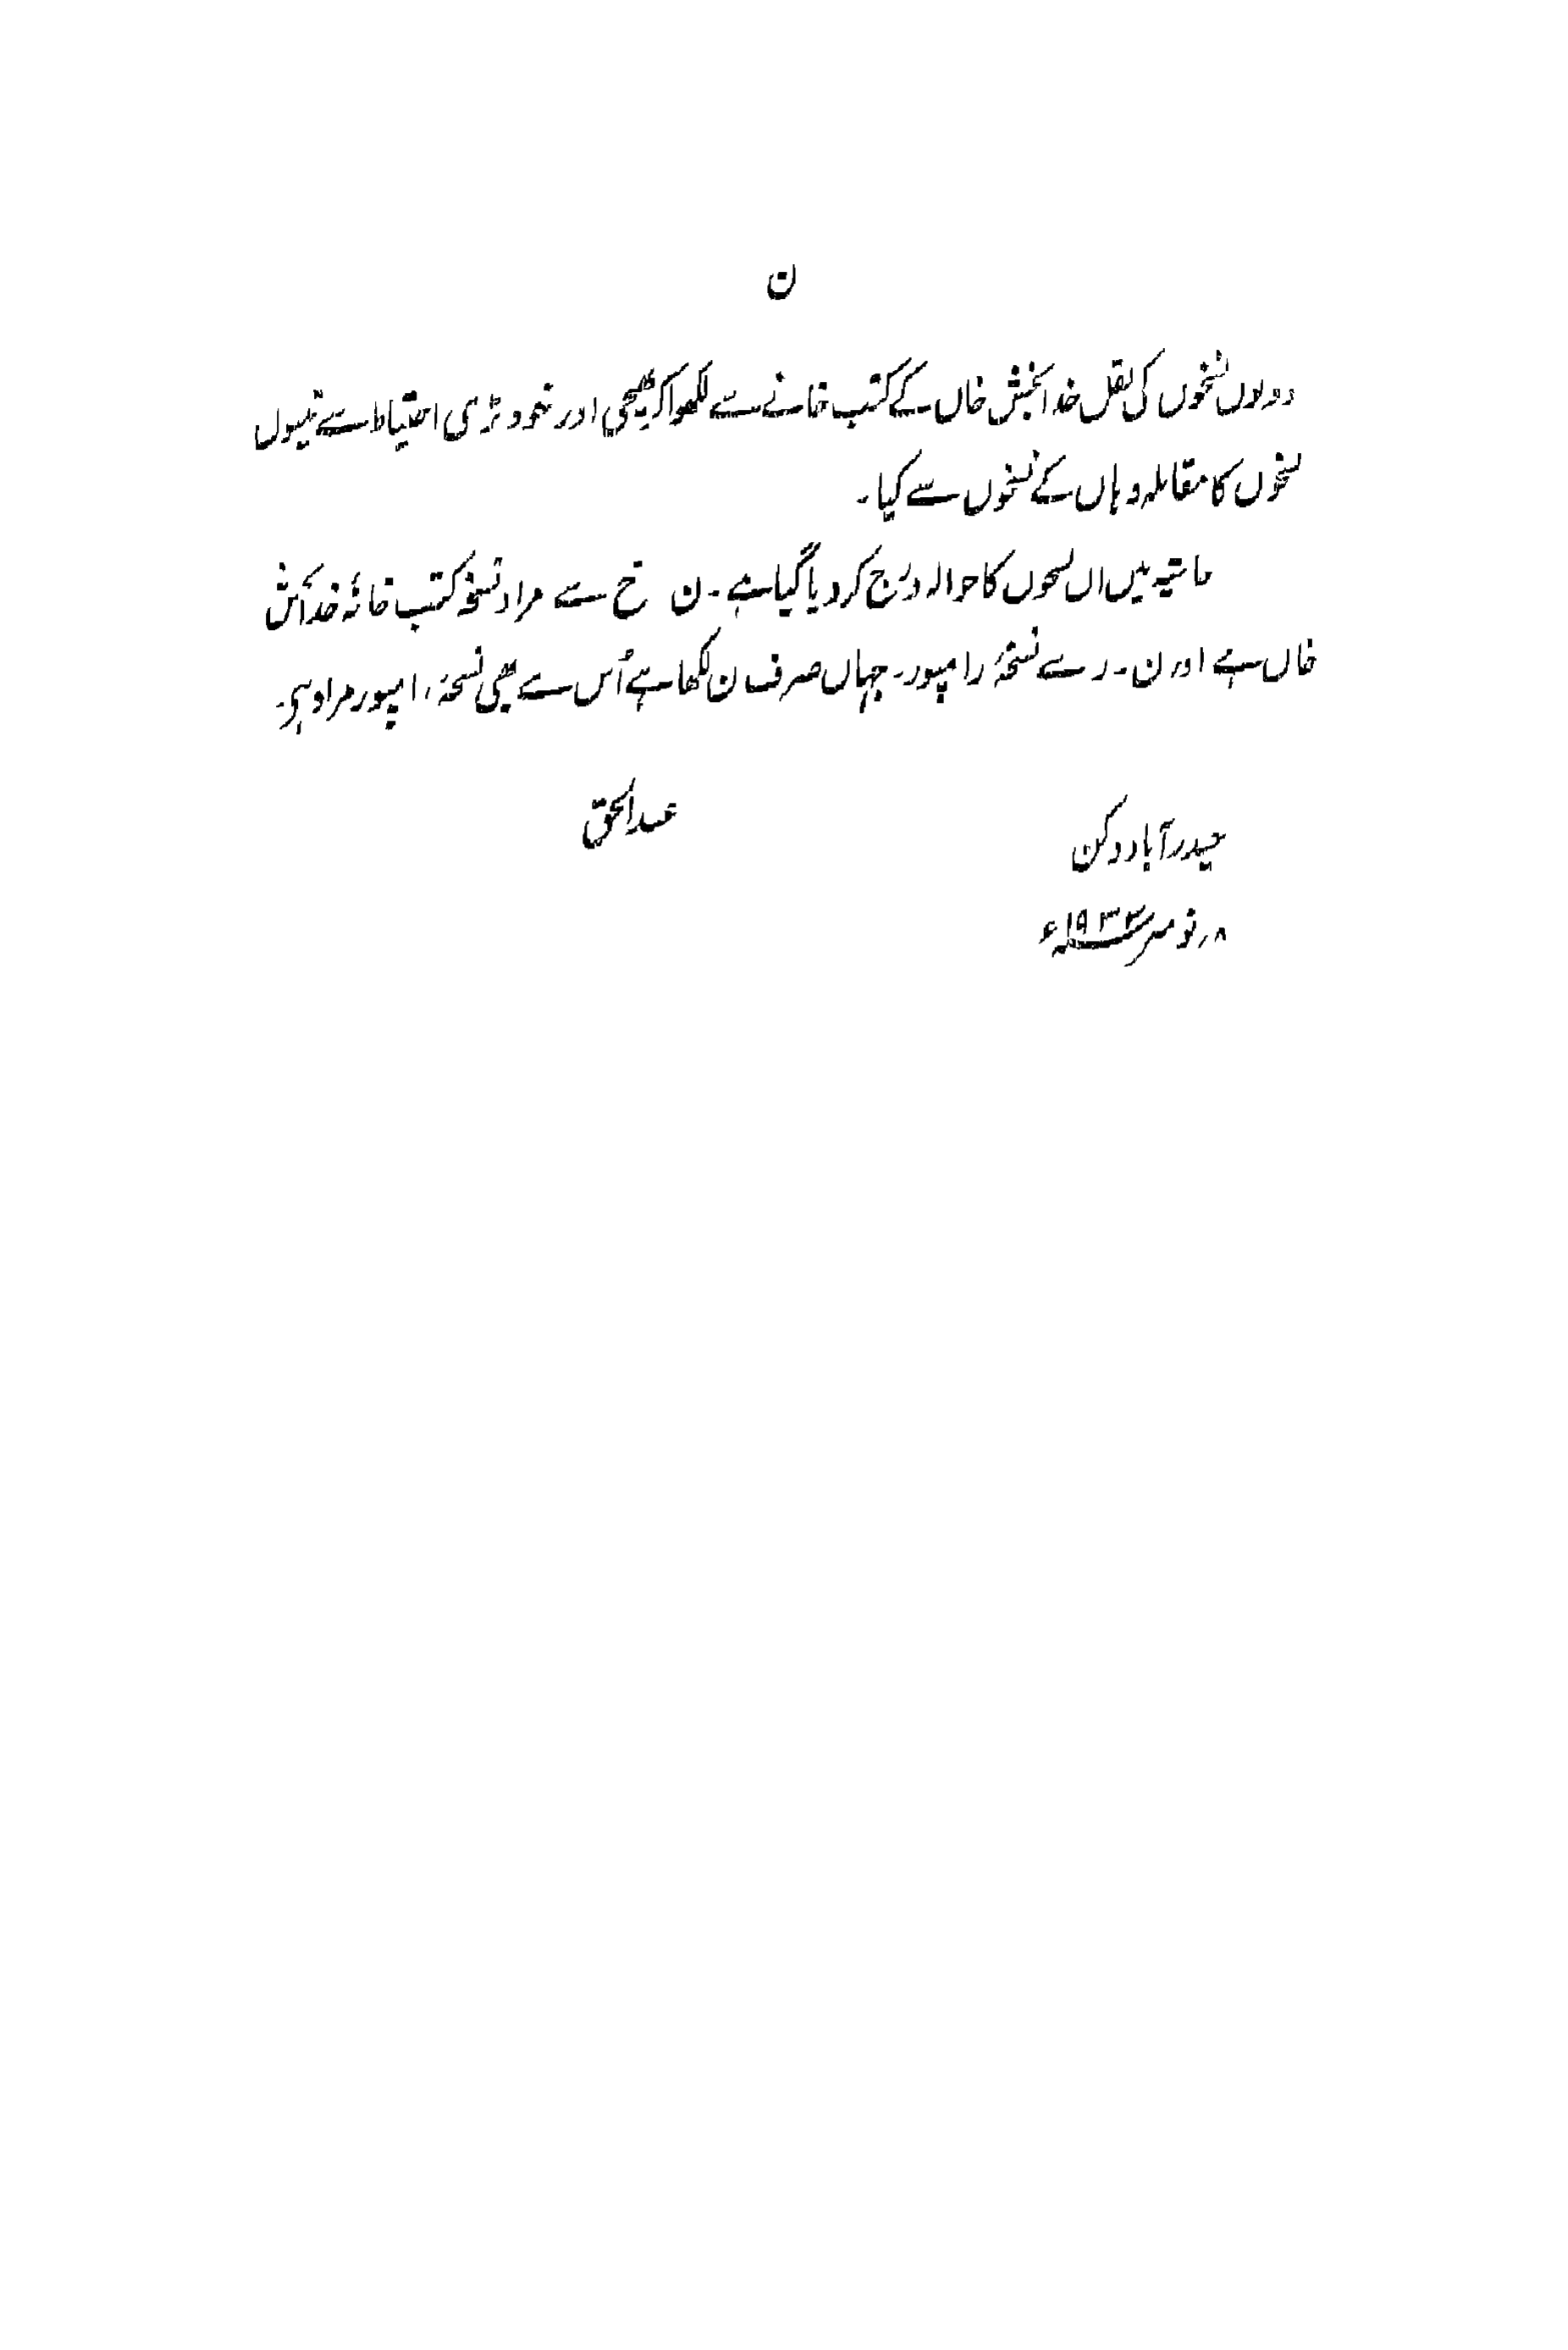 ن
دونوں نسخوں کی نقل خدا بخش خاں کے کتب خانے سے لکھوا کر بھیجی اور خود بڑی احتیاط سے تینوں
نسخوں کا مقابلہ وہاں کے نسخوں سے کیا۔
حاشیہ میں ان نسخوں کا حوالہ درج کر دیا گیا ہے۔ ن خ سے مراد نسخۂ کتب خانۂ خدا بخش
خاں ہے اور ن۔ ر سے نسخۂ رامپور۔ جہاں صرف ن لکھا ہے اُس سے بھی نسخۂ رامپور مراد ہی۔
عبدالحق
حیدرآباد دکن
۸؍نومبر ۱۹۳۳ء